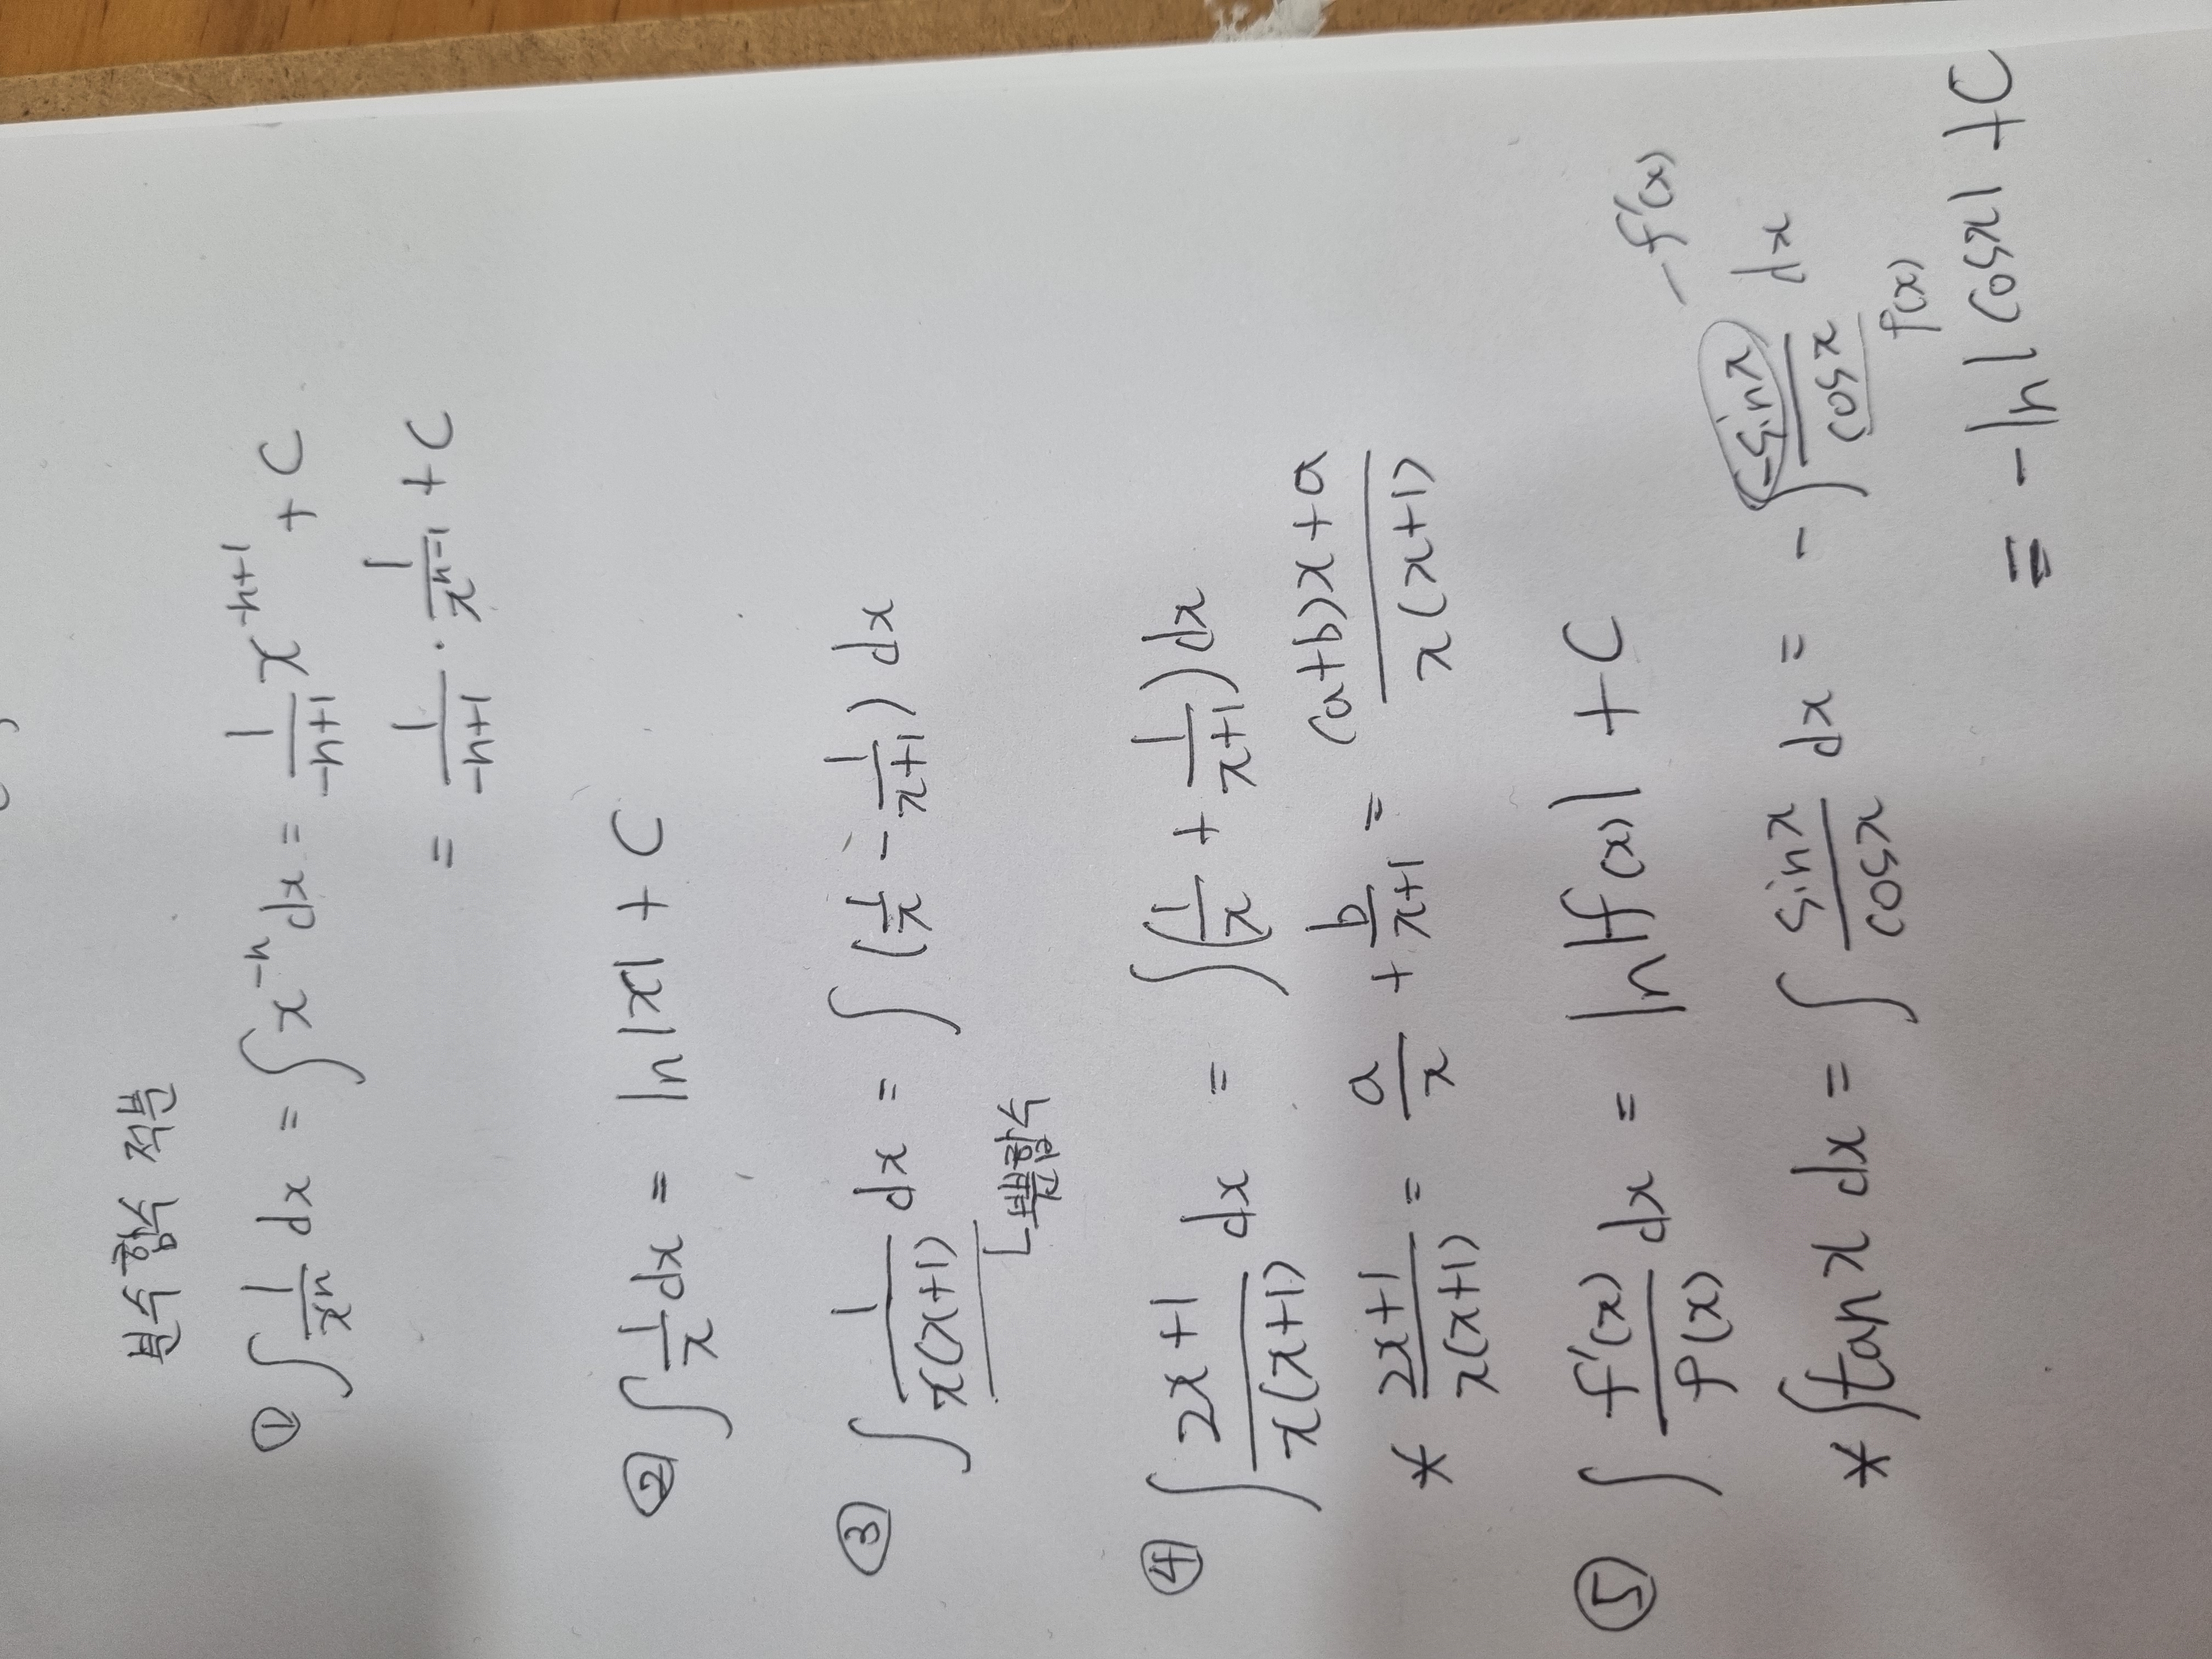 분수함수 적분
① ∫ 1/xⁿ dx = ∫ x⁻ⁿ dx = 1/(-n+1) x⁻ⁿ⁺¹ + C
= 1/(-n+1) · 1/xⁿ⁻¹ + C
② ∫ 1/x dx = ln|x| + C
③ ∫ 1/(x(x+1)) dx = ∫ (1/x - 1/(x+1)) dx
④ ∫ (2x+1)/(x(x+1)) dx = ∫ (1/x + 1/(x+1)) dx
* (2x+1)/(x(x+1)) = a/x + b/(x+1) = ((a+b)x+a)/(x(x+1))
⑤ ∫ f'(x)/f(x) dx = ln|f(x)| + C
- f'(x)
* ∫ tan x dx = ∫ sin x/cos x dx = - ∫ -sin x/cos x dx
f(x)
= - ln|cos x| + C